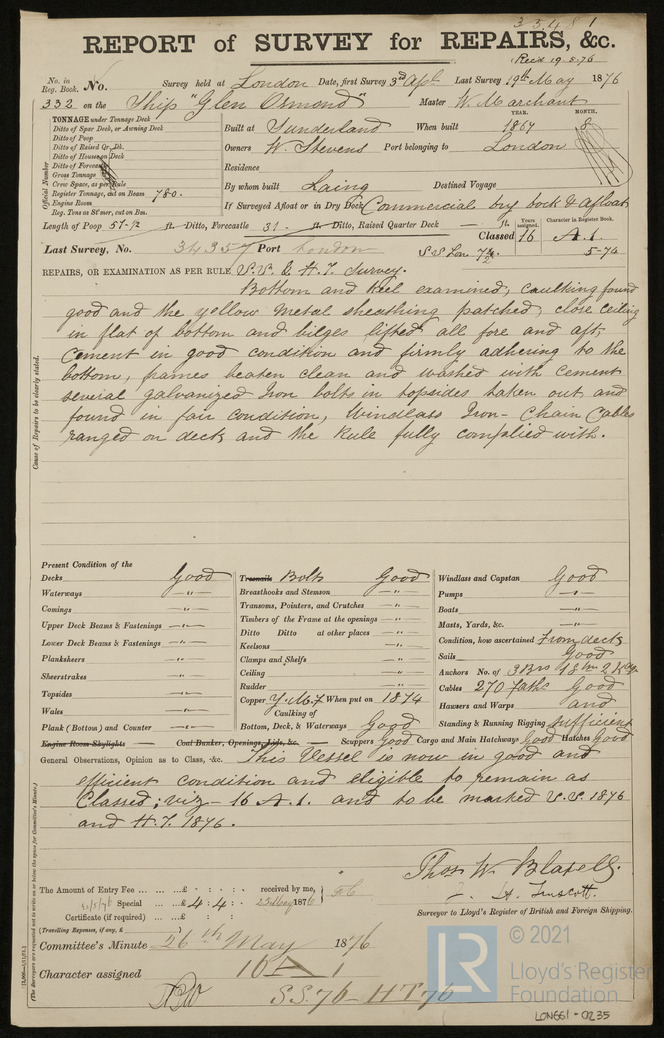 33481
REPORT of SURVEY for REPAIRS, &c.
Recd 19.5.76
No. in Reg. Book. No. Survey held at London Date, first Survey 3rd Apl Last Survey 19th May 1876
332 on the Ship "Glen Osmond" Master W. Marchant
TONNAGE under Tonnage Deck
YEAR. MONTH.
Ditto of Spar Deck, or Awning Deck
Built at Sunderland When built 1869 8
Ditto of Poop
Ditto of Raised Qr. Dk.
Owners W. Stevens Port belonging to London
Ditto of House on Deck
Ditto of Forecastle
Residence
Gross Tonnage
Crew Space, as per Rule
By whom built Laing Destined Voyage
Register Tonnage, cut on Beam 780.
Engine Room
If Surveyed Afloat or in Dry Dock Commercial dry dock & Afloat
Reg. Tons as St'mer, cut on Bm.
Official Number
Length of Poop 57-½ ft. Ditto, Forecastle 31. ft. Ditto, Raised Quarter Deck ft.
Classed Years assigned. 16 Character in Register Book. A.1.
Last Survey, No. 34357 Port London SS Lon 5-74
REPAIRS, OR EXAMINATION AS PER RULE S.S. & H.T. Survey.
Bottom and keel examined, caulking found
good and the yellow metal sheathing patched, close ceiling
in flat of bottom and bilges lifted all fore and aft,
cement in good condition and firmly adhering to the
bottom, frames beaten clean and washed with cement
several galvanized Iron bolts in topsides taken out and
found in fair condition, Windlass Iron- Chain Cables
ranged on deck and the Rule fully complied with.
Cause of Repairs to be clearly stated.
Present Condition of the
Decks Good
Waterways "
Comings "
Upper Deck Beams & Fastenings "
Lower Deck Beams & Fastenings "
Planksheers "
Sheerstrakes "
Topsides "
Wales "
Plank (Bottom) and Counter "
Treenails Bolts Good
Breasthooks and Stemson "
Transoms, Pointers, and Crutches "
Timbers of the Frame at the openings "
Ditto Ditto at other places "
Keelsons "
Clamps and Shelfs "
Ceiling "
Rudder "
Copper Y.M.F When put on 1874
Caulking of
Bottom, Deck, & Waterways Good
Windlass and Capstan Good
Pumps "
Boats "
Masts, Yards, &c. "
Condition, how ascertained From deck
Sails Good
Anchors No. of 3 Brs 1 Stm 2 Kdgs
Cables 270 faths Good
Hawsers and Warps and
Standing & Running Rigging Sufficient
Engine Room Skylights Coal Bunker, Openings, Lids, &c. Scuppers Good Cargo and Main Hatchways Good Hatches Good
General Observations, Opinion as to Class, &c. This Vessel is now in good and
efficient condition and eligible to remain as
Classed; viz- 16 A.1. and to be marked S.S. 1876
and H.T. 1876.
Thos W. Blaxell.
H. Truscott.
Surveyor to Lloyd's Register of British and Foreign Shipping.
The Amount of Entry Fee ... ... ... £ : : received by me,
Special ... ... £ 4 : 4 : 23 May 1876
Certificate (if required) ... ... £ : :
(Travelling Expenses, if any, £ )
Committee's Minute 26th May 1876
Character assigned 16 A 1
SS 76 - HT 76
(The Surveyors are requested not to write on or below the space for Committee's Minute.)
LR
© 2021
Lloyd's Register
Foundation
LON661-0235